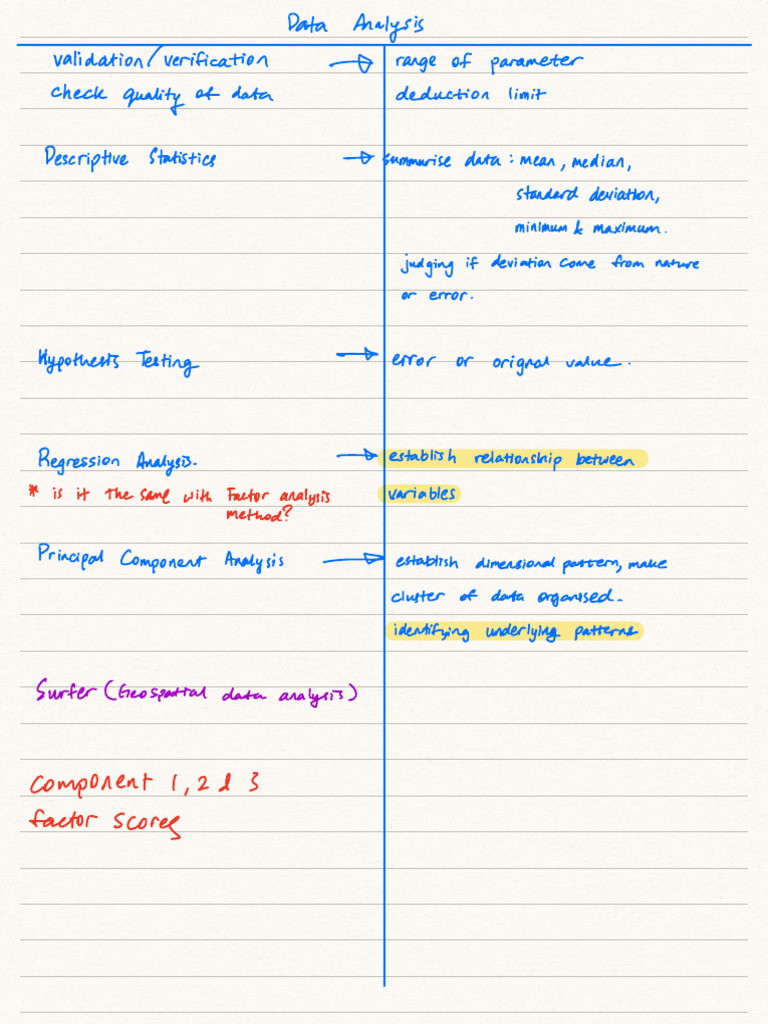 Data Analysis
validation/verification → range of parameter
check quality of data deduction limit
Descriptive Statistics → summurise data : mean, median,
standard deviation,
minimum & maximum.
judging if deviation come from nature
or error.
Hypothesis Testing → error or orignal value.
Regression Analysis. → establish relationship between
* is it the same with Factor analysis variables
method?
Principal Component Analysis → establish dimensional pattern, make
cluster of data organised.
identifying underlying patterns
Surfer (Geospatial data analysis)
Component 1, 2 & 3
factor scores